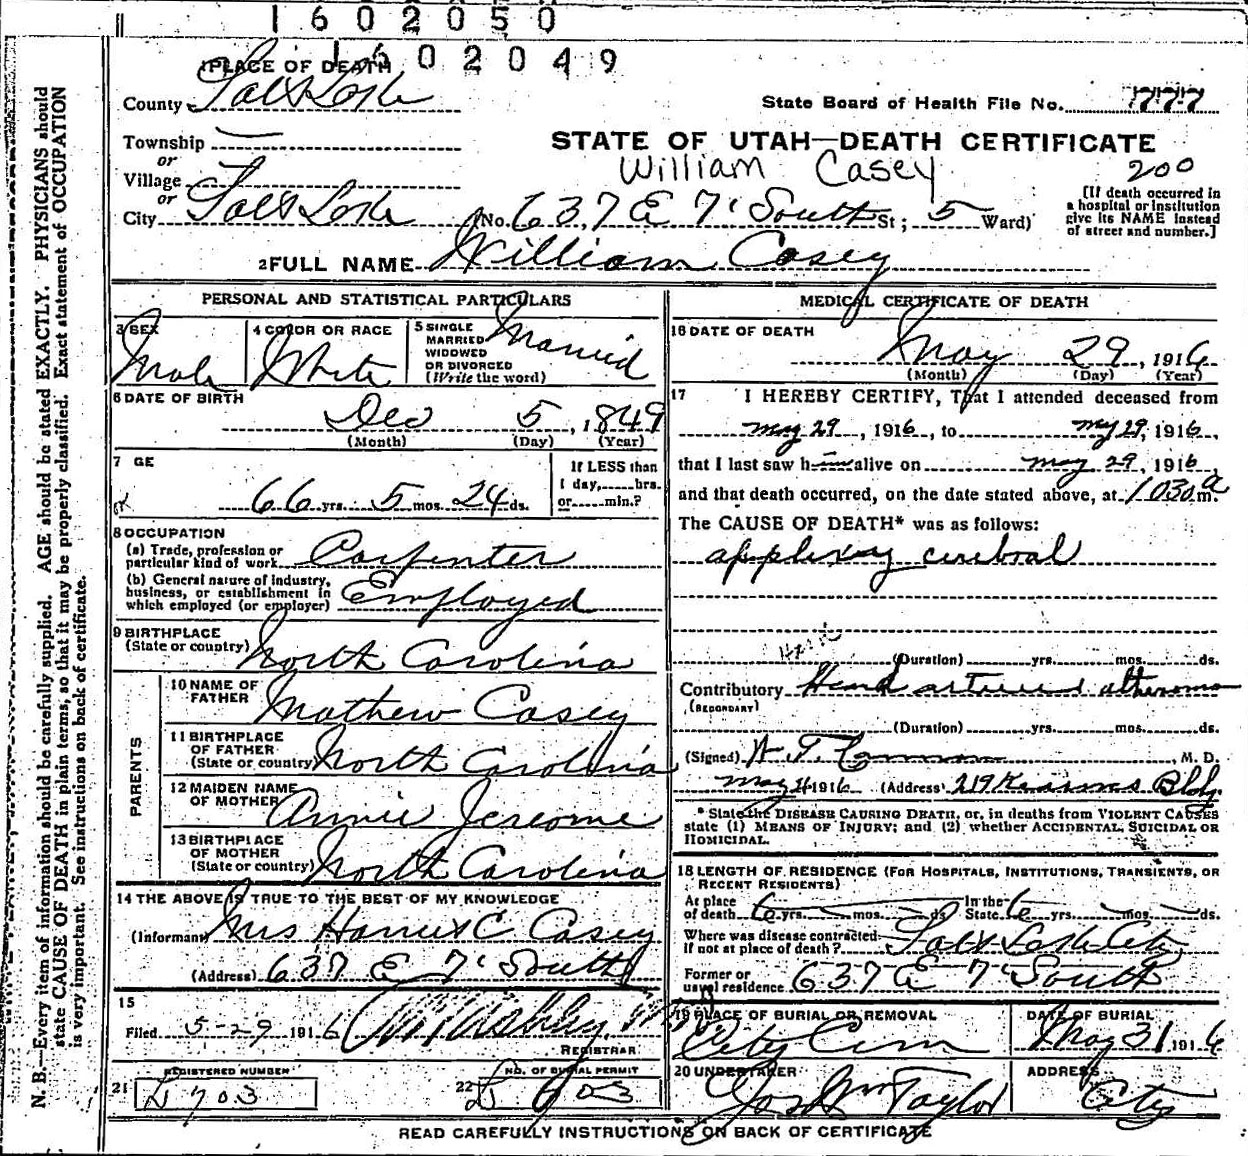 1602050
1602049
1 PLACE OF DEATH
County Salt Lake
State Board of Health File No. 777
Township —
STATE OF UTAH—DEATH CERTIFICATE
or
Village
William Casey
200
or
City Salt Lake (No. 637 E 7' South St; 5 Ward)
[If death occurred in
a hospital or institution
give its NAME instead
of street and number.]
2 FULL NAME William Casey
PERSONAL AND STATISTICAL PARTICULARS
3 SEX
Male
4 COLOR OR RACE
White
5 SINGLE
MARRIED
WIDOWED
OR DIVORCED
(Write the word)
Married
6 DATE OF BIRTH
Dec 5, 1849
(Month) (Day) (Year)
7 GE
66 yrs. 5 mos. 24 ds.
If LESS than
1 day,......hrs.
or......min.?
8 OCCUPATION
(a) Trade, profession or
particular kind of work Carpenter
(b) General nature of industry,
business, or establishment in
which employed (or employer) Employed
9 BIRTHPLACE
(State or country) North Carolina
PARENTS
10 NAME OF
FATHER Mathew Casey
11 BIRTHPLACE
OF FATHER
(State or country) North Carolina
12 MAIDEN NAME
OF MOTHER Annie Jereome
13 BIRTHPLACE
OF MOTHER
(State or country) North Carolina
14 THE ABOVE IS TRUE TO THE BEST OF MY KNOWLEDGE
(Informant) Mrs Harriet E Casey
(Address) 637 E 7' South
15
Filed 5-29 1916
REGISTRAR
21 REGISTERED NUMBER
L 703
22 NO. OF BURIAL PERMIT
L 703
MEDICAL CERTIFICATE OF DEATH
16 DATE OF DEATH
May 29, 1916
(Month) (Day) (Year)
17 I HEREBY CERTIFY, That I attended deceased from
May 29, 1916, to May 29, 1916,
that I last saw him alive on May 29, 1916,
and that death occurred, on the date stated above, at 1030 a m.
The CAUSE OF DEATH* was as follows:
applexy cerebral
(Duration)......yrs.......mos.......ds.
Contributory
(SECONDARY)
(Duration)......yrs.......mos.......ds.
(Signed) M. D.
May 1916 (Address) 219 Kearns Bldg.
* State the DISEASE CAUSING DEATH, or, in deaths from VIOLENT CAUSES
state (1) MEANS OF INJURY; and (2) whether ACCIDENTAL, SUICIDAL OR
HOMICIDAL.
18 LENGTH OF RESIDENCE (FOR HOSPITALS, INSTITUTIONS, TRANSIENTS, OR
RECENT RESIDENTS)
At place
of death 6 yrs. — mos. — ds.
In the
State 6 yrs. — mos. — ds.
Where was disease contracted
if not at place of death? Salt Lake City
Former or
usual residence 637 E 7' South
19 PLACE OF BURIAL OR REMOVAL
City Cem
DATE OF BURIAL
May 31 1916
20 UNDERTAKER
Jos Wm Taylor
ADDRESS
City
READ CAREFULLY INSTRUCTIONS ON BACK OF CERTIFICATE
N. B.—Every item of information should be carefully supplied. AGE should be stated EXACTLY. PHYSICIANS should
state CAUSE OF DEATH in plain terms, so that it may be properly classified. Exact statement of OCCUPATION
is very important. See instructions on back of certificate.